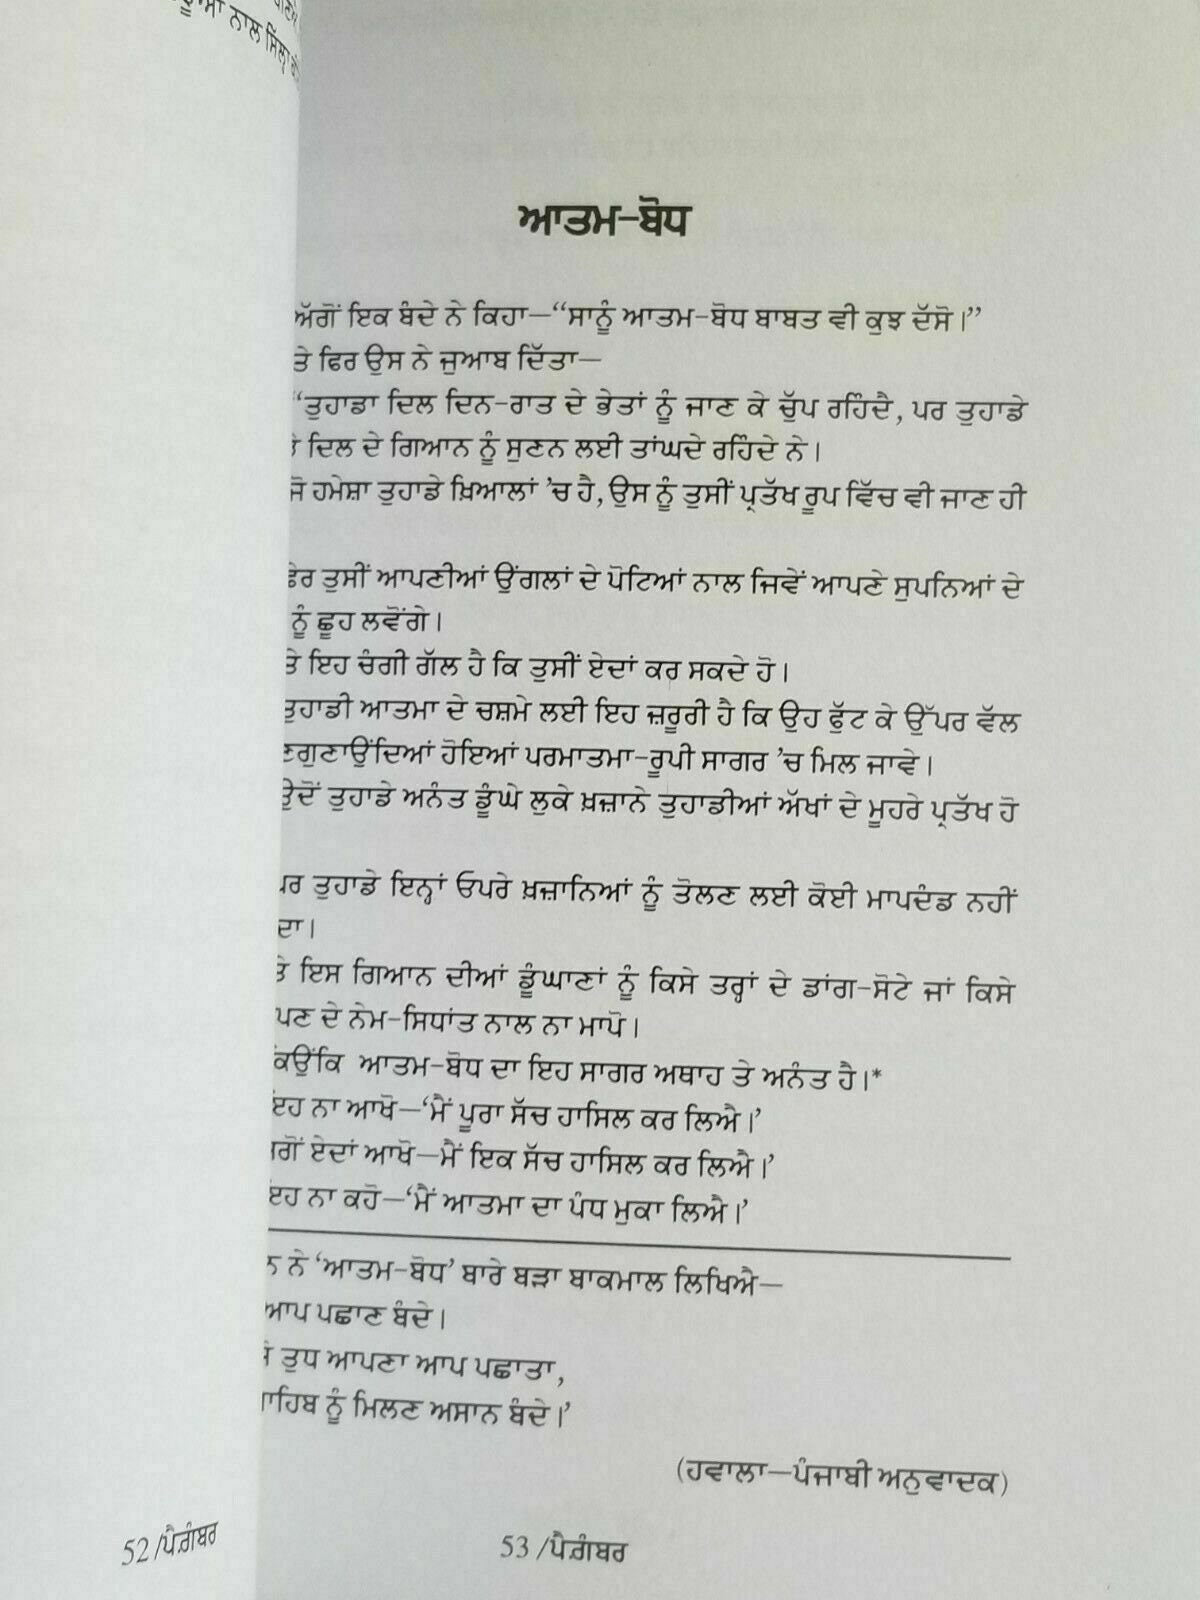 ਨਾਲ
ਆਤਮ-ਬੋਧ
ਅੱਗੋਂ ਇਕ ਬੰਦੇ ਨੇ ਕਿਹਾ—“ਸਾਨੂੰ ਆਤਮ-ਬੋਧ ਬਾਬਤ ਵੀ ਕੁਝ ਦੱਸੋ।”
ਤੇ ਫਿਰ ਉਸ ਨੇ ਜੁਆਬ ਦਿੱਤਾ—
“ਤੁਹਾਡਾ ਦਿਲ ਦਿਨ-ਰਾਤ ਦੇ ਭੇਤਾਂ ਨੂੰ ਜਾਣ ਕੇ ਚੁੱਪ ਰਹਿੰਦੈ, ਪਰ ਤੁਹਾਡੇ
ਦਿਲ ਦੇ ਗਿਆਨ ਨੂੰ ਸੁਣਨ ਲਈ ਤਾਂਘਦੇ ਰਹਿੰਦੇ ਨੇ।
ਜੋ ਹਮੇਸ਼ਾ ਤੁਹਾਡੇ ਖ਼ਿਆਲਾਂ ’ਚ ਹੈ, ਉਸ ਨੂੰ ਤੁਸੀਂ ਪ੍ਰਤੱਖ ਰੂਪ ਵਿੱਚ ਵੀ ਜਾਣ ਹੀ
ਫੇਰ ਤੁਸੀਂ ਆਪਣੀਆਂ ਉਂਗਲਾਂ ਦੇ ਪੋਟਿਆਂ ਨਾਲ ਜਿਵੇਂ ਆਪਣੇ ਸੁਪਨਿਆਂ ਦੇ
ਨੂੰ ਛੂਹ ਲਵੋਂਗੇ।
ਤੇ ਇਹ ਚੰਗੀ ਗੱਲ ਹੈ ਕਿ ਤੁਸੀਂ ਏਦਾਂ ਕਰ ਸਕਦੇ ਹੋ।
ਤੁਹਾਡੀ ਆਤਮਾ ਦੇ ਚਸ਼ਮੇ ਲਈ ਇਹ ਜ਼ਰੂਰੀ ਹੈ ਕਿ ਉਹ ਫੁੱਟ ਕੇ ਉੱਪਰ ਵੱਲ
ਣਗੁਣਾਉਂਦਿਆਂ ਹੋਇਆਂ ਪਰਮਾਤਮਾ-ਰੂਪੀ ਸਾਗਰ ’ਚ ਮਿਲ ਜਾਵੇ।
ਉਦੋਂ ਤੁਹਾਡੇ ਅਨੰਤ ਡੂੰਘੇ ਲੁਕੇ ਖ਼ਜ਼ਾਨੇ ਤੁਹਾਡੀਆਂ ਅੱਖਾਂ ਦੇ ਮੂਹਰੇ ਪ੍ਰਤੱਖ ਹੋ
ਪਰ ਤੁਹਾਡੇ ਇਨ੍ਹਾਂ ਓਪਰੇ ਖ਼ਜ਼ਾਨਿਆਂ ਨੂੰ ਤੋਲਣ ਲਈ ਕੋਈ ਮਾਪਦੰਡ ਨਹੀਂ
ਦਾ।
ਤੇ ਇਸ ਗਿਆਨ ਦੀਆਂ ਡੂੰਘਾਣਾਂ ਨੂੰ ਕਿਸੇ ਤਰ੍ਹਾਂ ਦੇ ਡਾਂਗ-ਸੋਟੇ ਜਾਂ ਕਿਸੇ
ਪਣ ਦੇ ਨੇਮ-ਸਿਧਾਂਤ ਨਾਲ ਨਾ ਮਾਪੋ।
ਕਿਉਂਕਿ ਆਤਮ-ਬੋਧ ਦਾ ਇਹ ਸਾਗਰ ਅਥਾਹ ਤੇ ਅਨੰਤ ਹੈ।*
ਇਹ ਨਾ ਆਖੋ—‘ਮੈਂ ਪੂਰਾ ਸੱਚ ਹਾਸਿਲ ਕਰ ਲਿਐ।’
ਗੋਂ ਏਦਾਂ ਆਖੋ—ਮੈਂ ਇਕ ਸੱਚ ਹਾਸਿਲ ਕਰ ਲਿਐ।’
ਇਹ ਨਾ ਕਹੋ—‘ਮੈਂ ਆਤਮਾ ਦਾ ਪੰਧ ਮੁਕਾ ਲਿਐ।’
ਨ ਨੇ ‘ਆਤਮ-ਬੋਧ’ ਬਾਰੇ ਬੜਾ ਬਾਕਮਾਲ ਲਿਖਿਐ—
ਆਪ ਪਛਾਣ ਬੰਦੇ।
ਤੁਧ ਆਪਣਾ ਆਪ ਪਛਾਤਾ,
ਾਹਿਬ ਨੂੰ ਮਿਲਣ ਅਸਾਨ ਬੰਦੇ।’
(ਹਵਾਲਾ—ਪੰਜਾਬੀ ਅਨੁਵਾਦਕ)
52/ਪੈਗ਼ੰਬਰ
53/ਪੈਗ਼ੰਬਰ